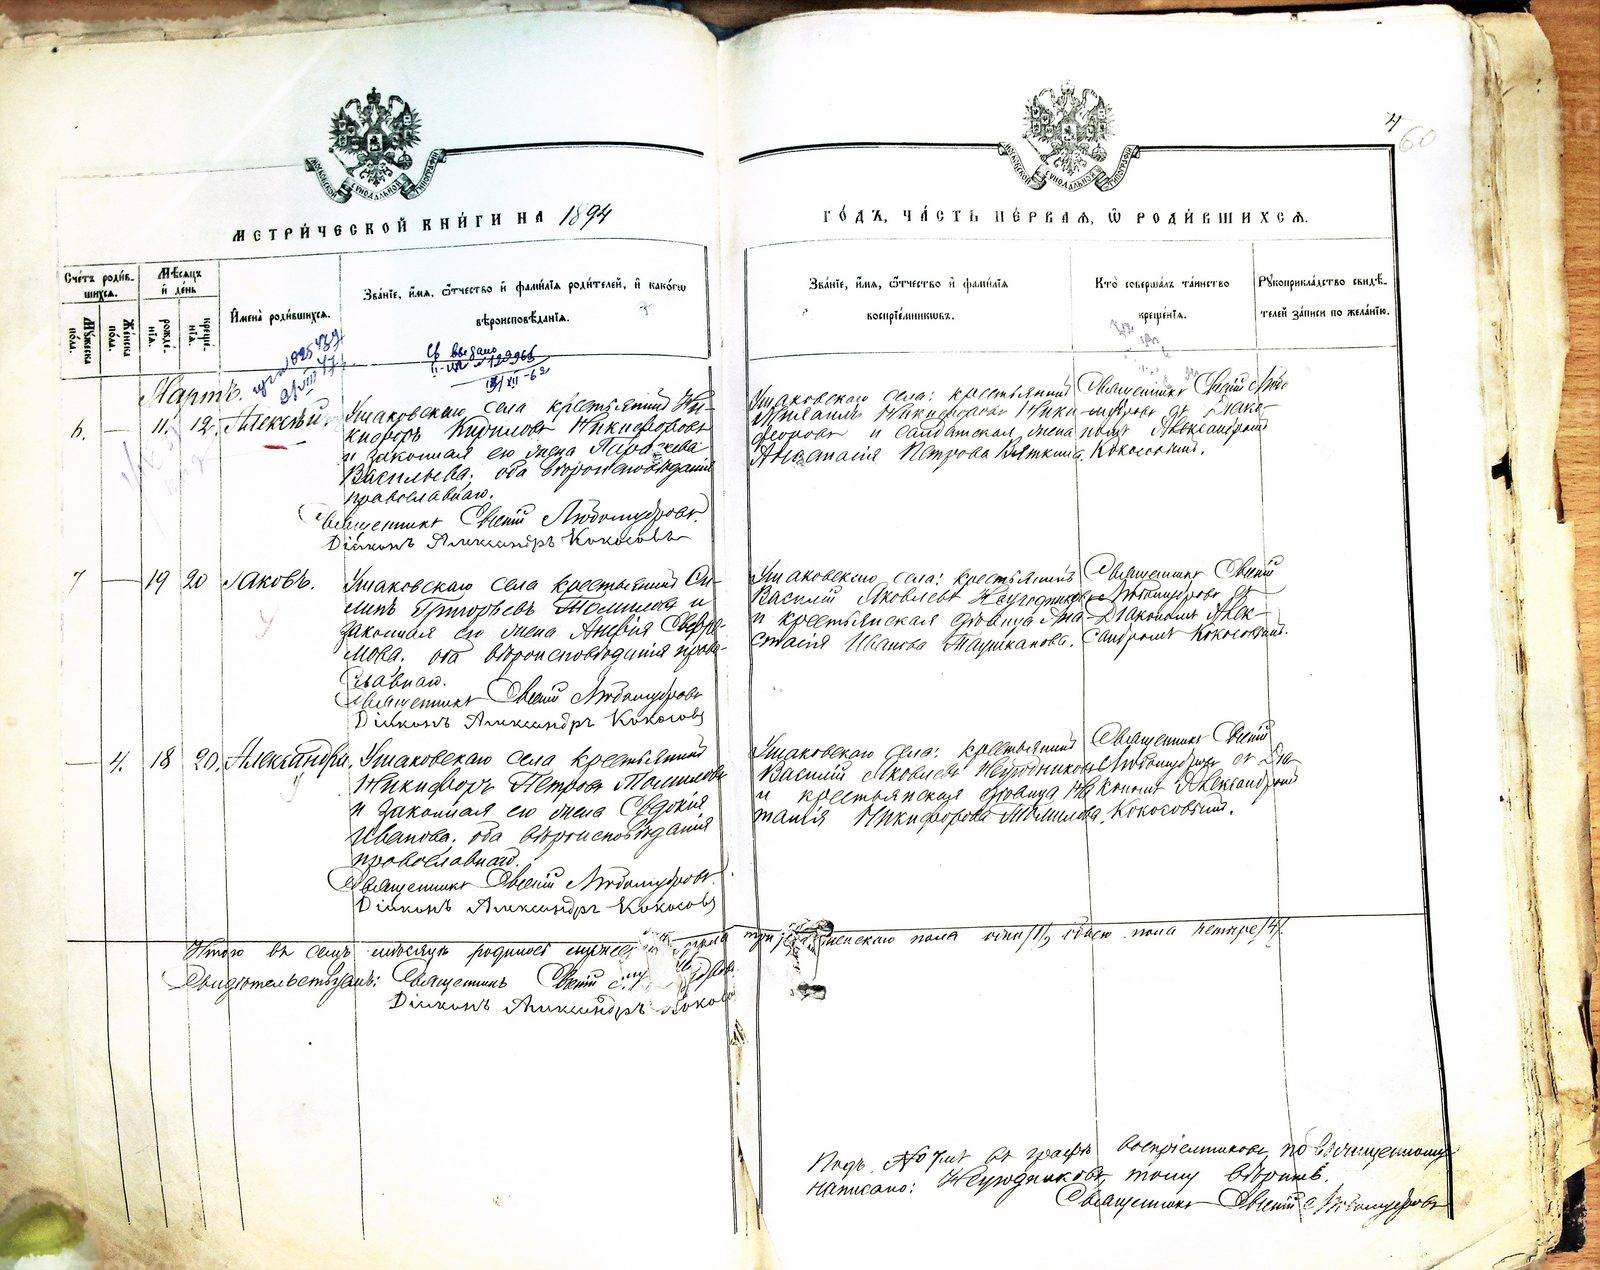 4
60
МОСКОВСКОЙ СѴНОДАЛЬНОЙ ТИПОГРАФІИ
МОСКОВСКОЙ СѴНОДАЛЬНОЙ ТИПОГРАФІИ
МЕТРИ́ЧЕСКОЙ КНИ́ГИ НА 1894
ГО́ДЪ, ЧА́СТЬ ПЕ́РВАЯ, Ѡ РОДИ́ВШИХСЯ.
Сче́тъ роди́в-
шихся.
Му́жеска по́ла.
Же́нска по́ла.
Мѣ́сяцъ
и де́нь
рожде́-
нїя.
креще́-
нїя.
И́мена̀ роди́вшихся.
Зва́нїе, и́мя, ѻ́тчество и фами́лїя роди́телей, и како́гѡ
вѣроисповѣ́данїя.
Зва́нїе, и́мя, ѻ́тчество и фами́лїя
воспрїе́мникѡвъ.
Кто̀ соверша́лъ та́инство
креще́нїя.
Рꙋкоприкла́дство свидѣ́-
телей за́писи по жела́нїю.
Мартъ.
6.
11.
12.
Алексѣй
Ушаковскаго села крестьянинъ Ни-
кифоръ Кириловъ Никифоровъ
и законная его жена Параскева
Васильева, оба вѣроисповѣданія
православнаго.
Священникъ Евгеній Любомудровъ.
Діаконъ Александръ Кокосовъ
Ушаковскаго села: крестьянинъ
Михаилъ Никифоровъ Ники-
форовъ и солдатская жена
Анастасія Петрова Вяткина.
Священникъ Евгеній Любо-
мудровъ съ Діако-
номъ Александромъ
Кокосовымъ.
7
19
20
Іаковъ.
Ушаковскаго села крестьянинъ
Григорьевъ Томиловъ и
законная его жена
оба вѣроисповѣданія право-
славнаго.
Священникъ Евгеній Любомудровъ
Діаконъ Александръ Кокосовъ
Ушаковскаго села: крестьянинъ
Василій Яковлевъ Неугодниковъ
и крестьянская дѣвица Ана-
стасія Иванова Таушканова.
Священникъ Евгеній
Любомудровъ съ
Діакономъ Алек-
сандромъ Кокосовымъ.
4.
18
20.
Александра,
Ушаковскаго села крестьянинъ
Никифоръ Петровъ Томиловъ
и законная его жена Евдокія
Иванова, оба вѣроисповѣданія
православнаго.
Священникъ Евгеній Любомудровъ.
Діаконъ Александръ Кокосовъ
Ушаковскаго села: крестьянинъ
Василій Яковлевъ Неугодниковъ
и крестьянская дѣвица На-
талія Никифорова Томилова.
Священникъ Евгеній
Любомудровъ съ Діа-
кономъ Александромъ
Кокосовымъ.
Итого въ семъ мѣсяцѣ родилось три женскаго пола одна /1/, обоего пола четыре /4/.
Свидѣтельствуемъ: Священникъ Евгеній
Діаконъ Александръ
Подъ № 7мъ въ графѣ воспріемниковъ по вычищенному
написано: Неугодниковъ, тому вѣрить.
Священникъ Евгеній Любомудровъ